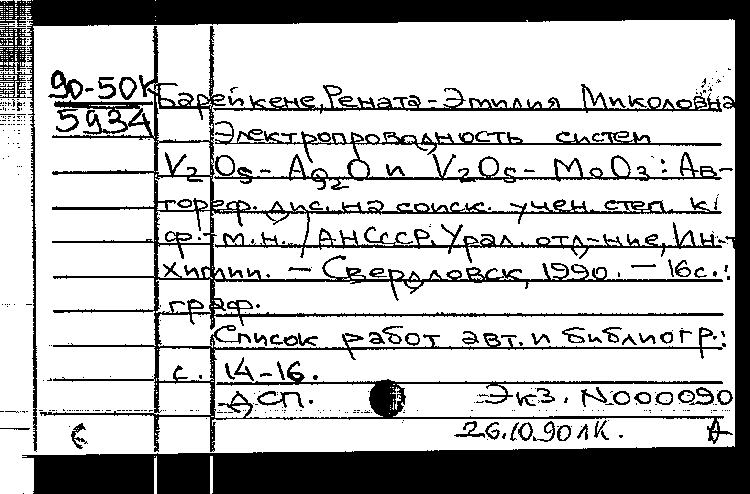 90-50к
5934
Барейкене, Рената-Эмилия Миколовна
Электропроводность систем
V2O5-Ag2O и V2O5-MoO3: Ав-
тореф. дис. на соиск. учен. степ. к.
ф.-м.н. / АН СССР. Урал. отд-ние, Ин-т
химии. – Свердловск, 1990. – 16 с.:
граф.
Список работ авт. и библиогр.:
с. 14-16.
ДСП. Экз. N000090
26.10.90 ЛК.